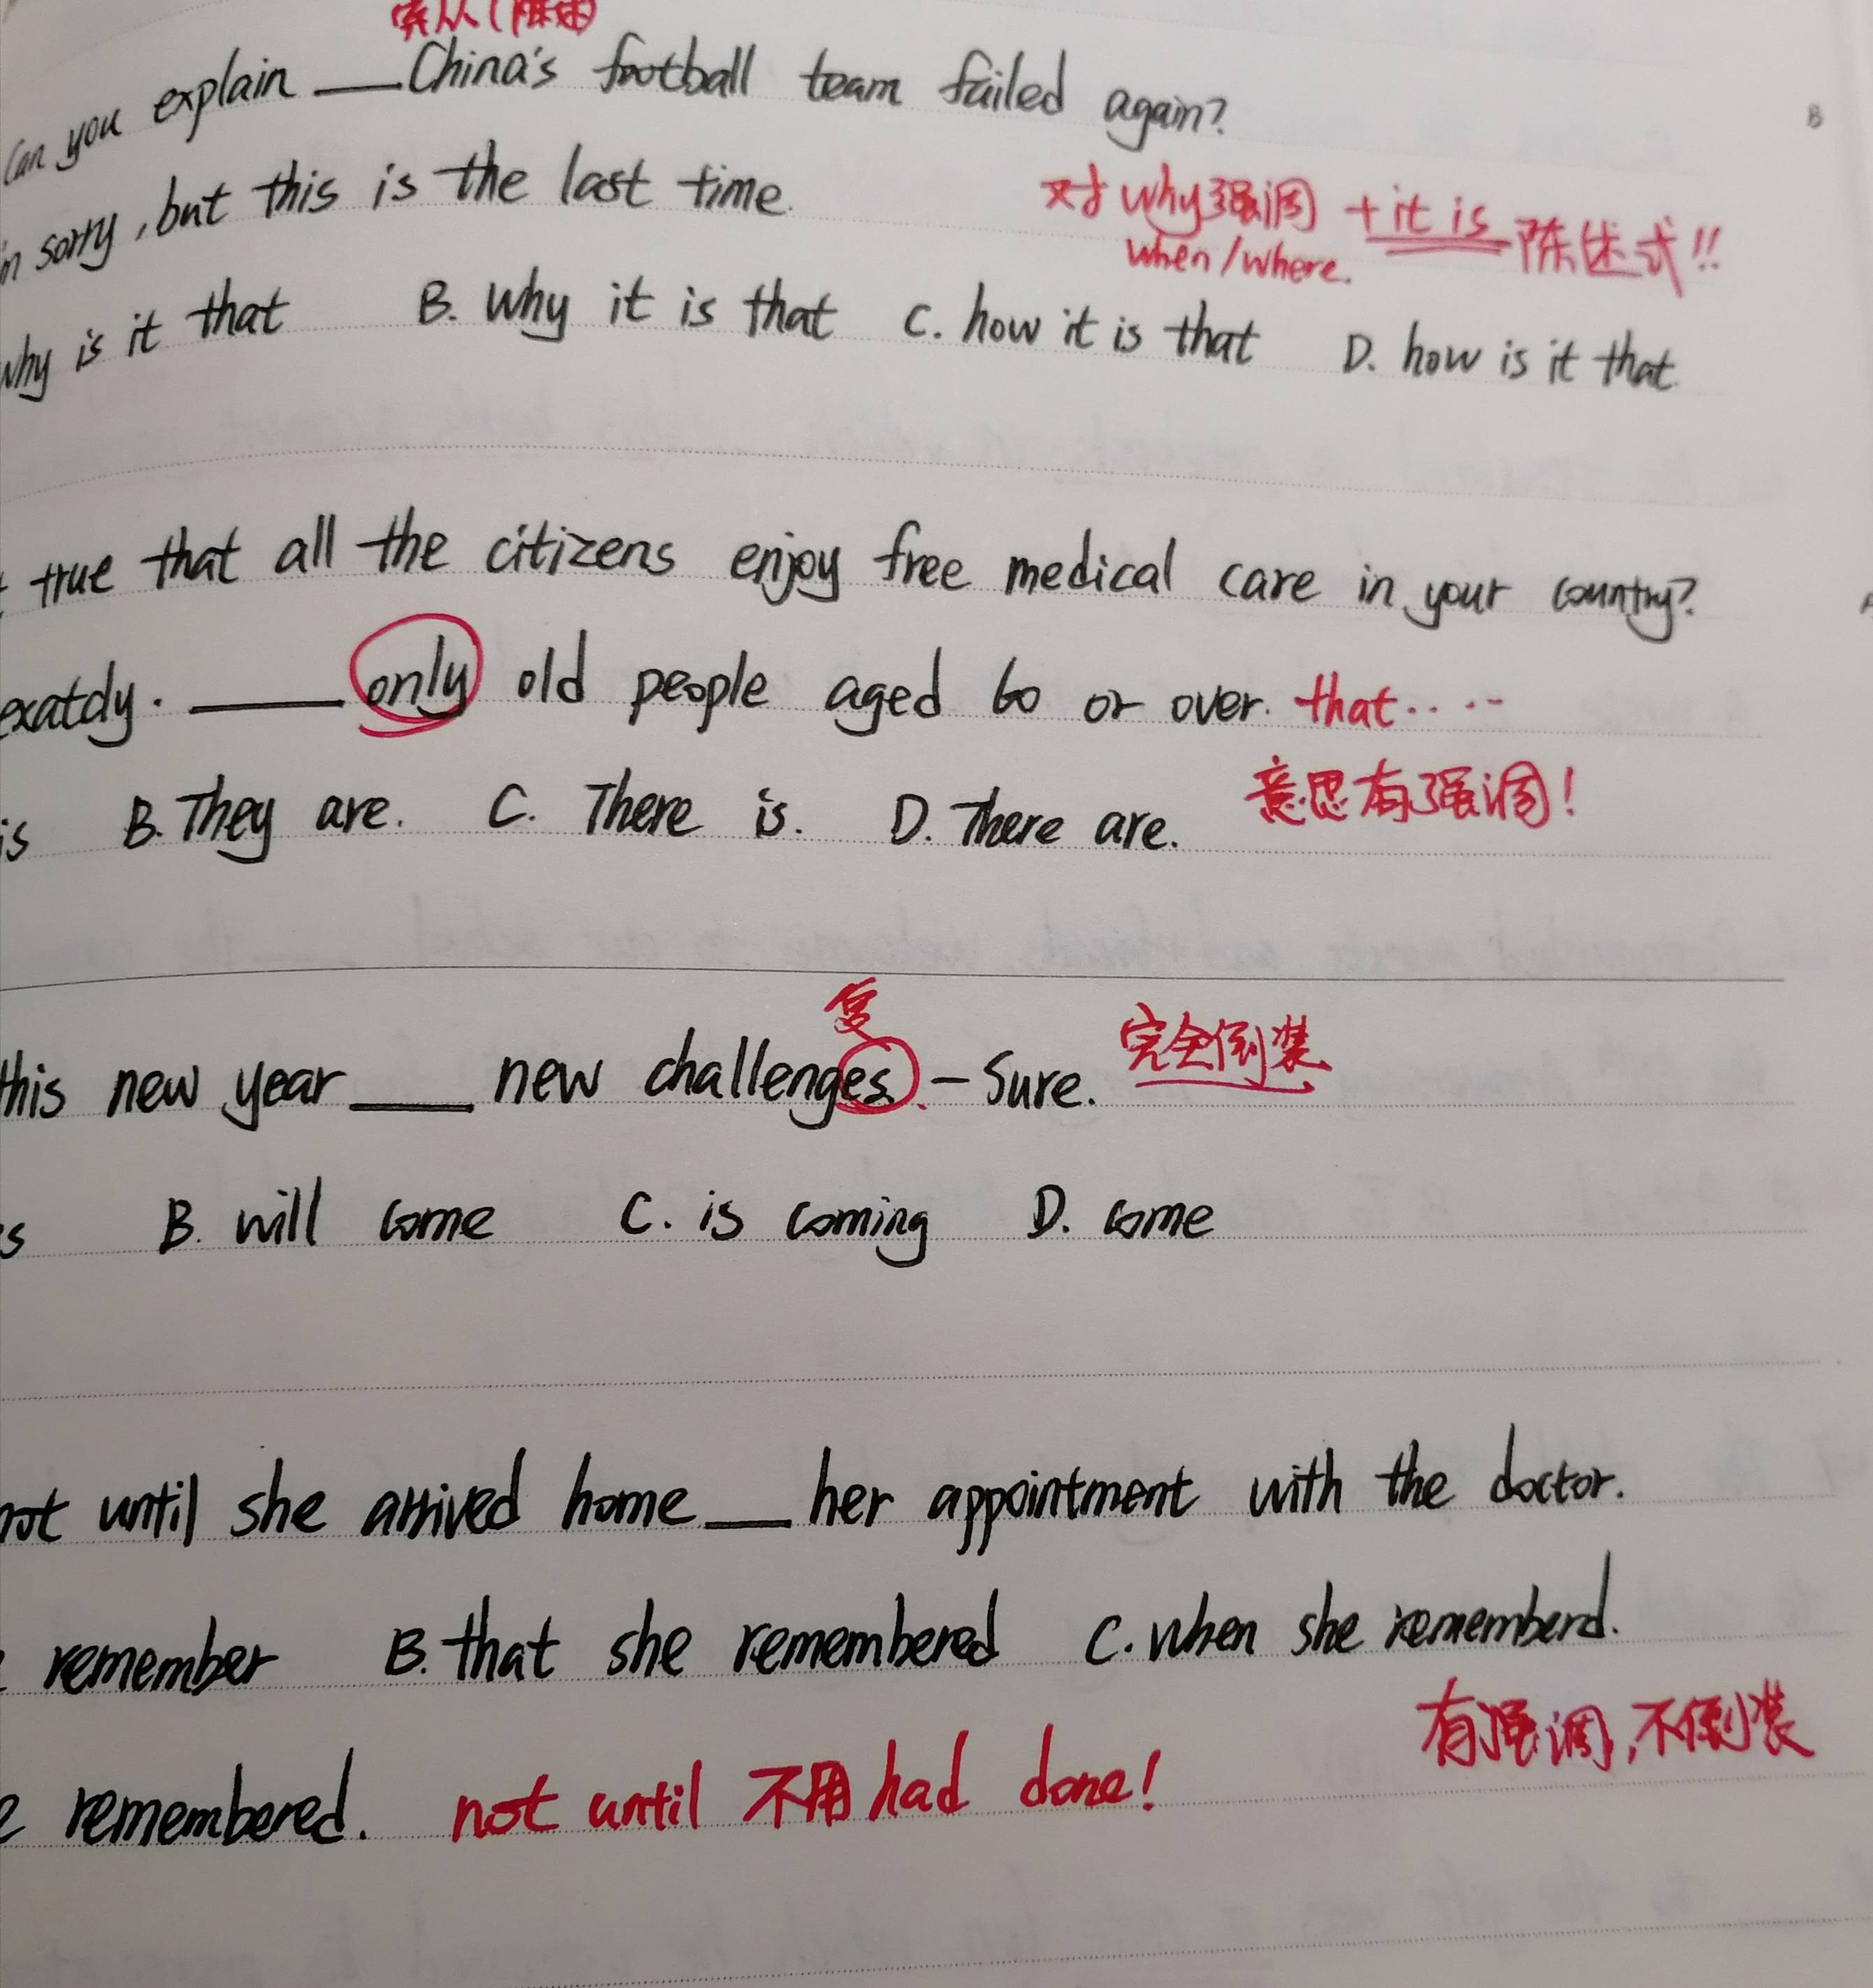 宾从(陈述)
Can you explain ___ China's football team failed again?
sorry, but this is the last time.
对why强调 + it is 陈述式!!
when/where.
why is it that B. Why it is that C. how it is that D. how is it that.
B
true that all the citizens enjoy free medical care in your country?
exatdy. ___ only old people aged 60 or over. that....
is B. They are. C. There is. D. There are.
意思有强调!
复
this new year ___ new challenges. - Sure.
完全倒装
s B. will come C. is coming D. come
not until she arrived home ___ her appointment with the doctor.
remember B. that she remembered C. when she rememberd.
有强调,不倒装
e remembered. not until 不用 had done!